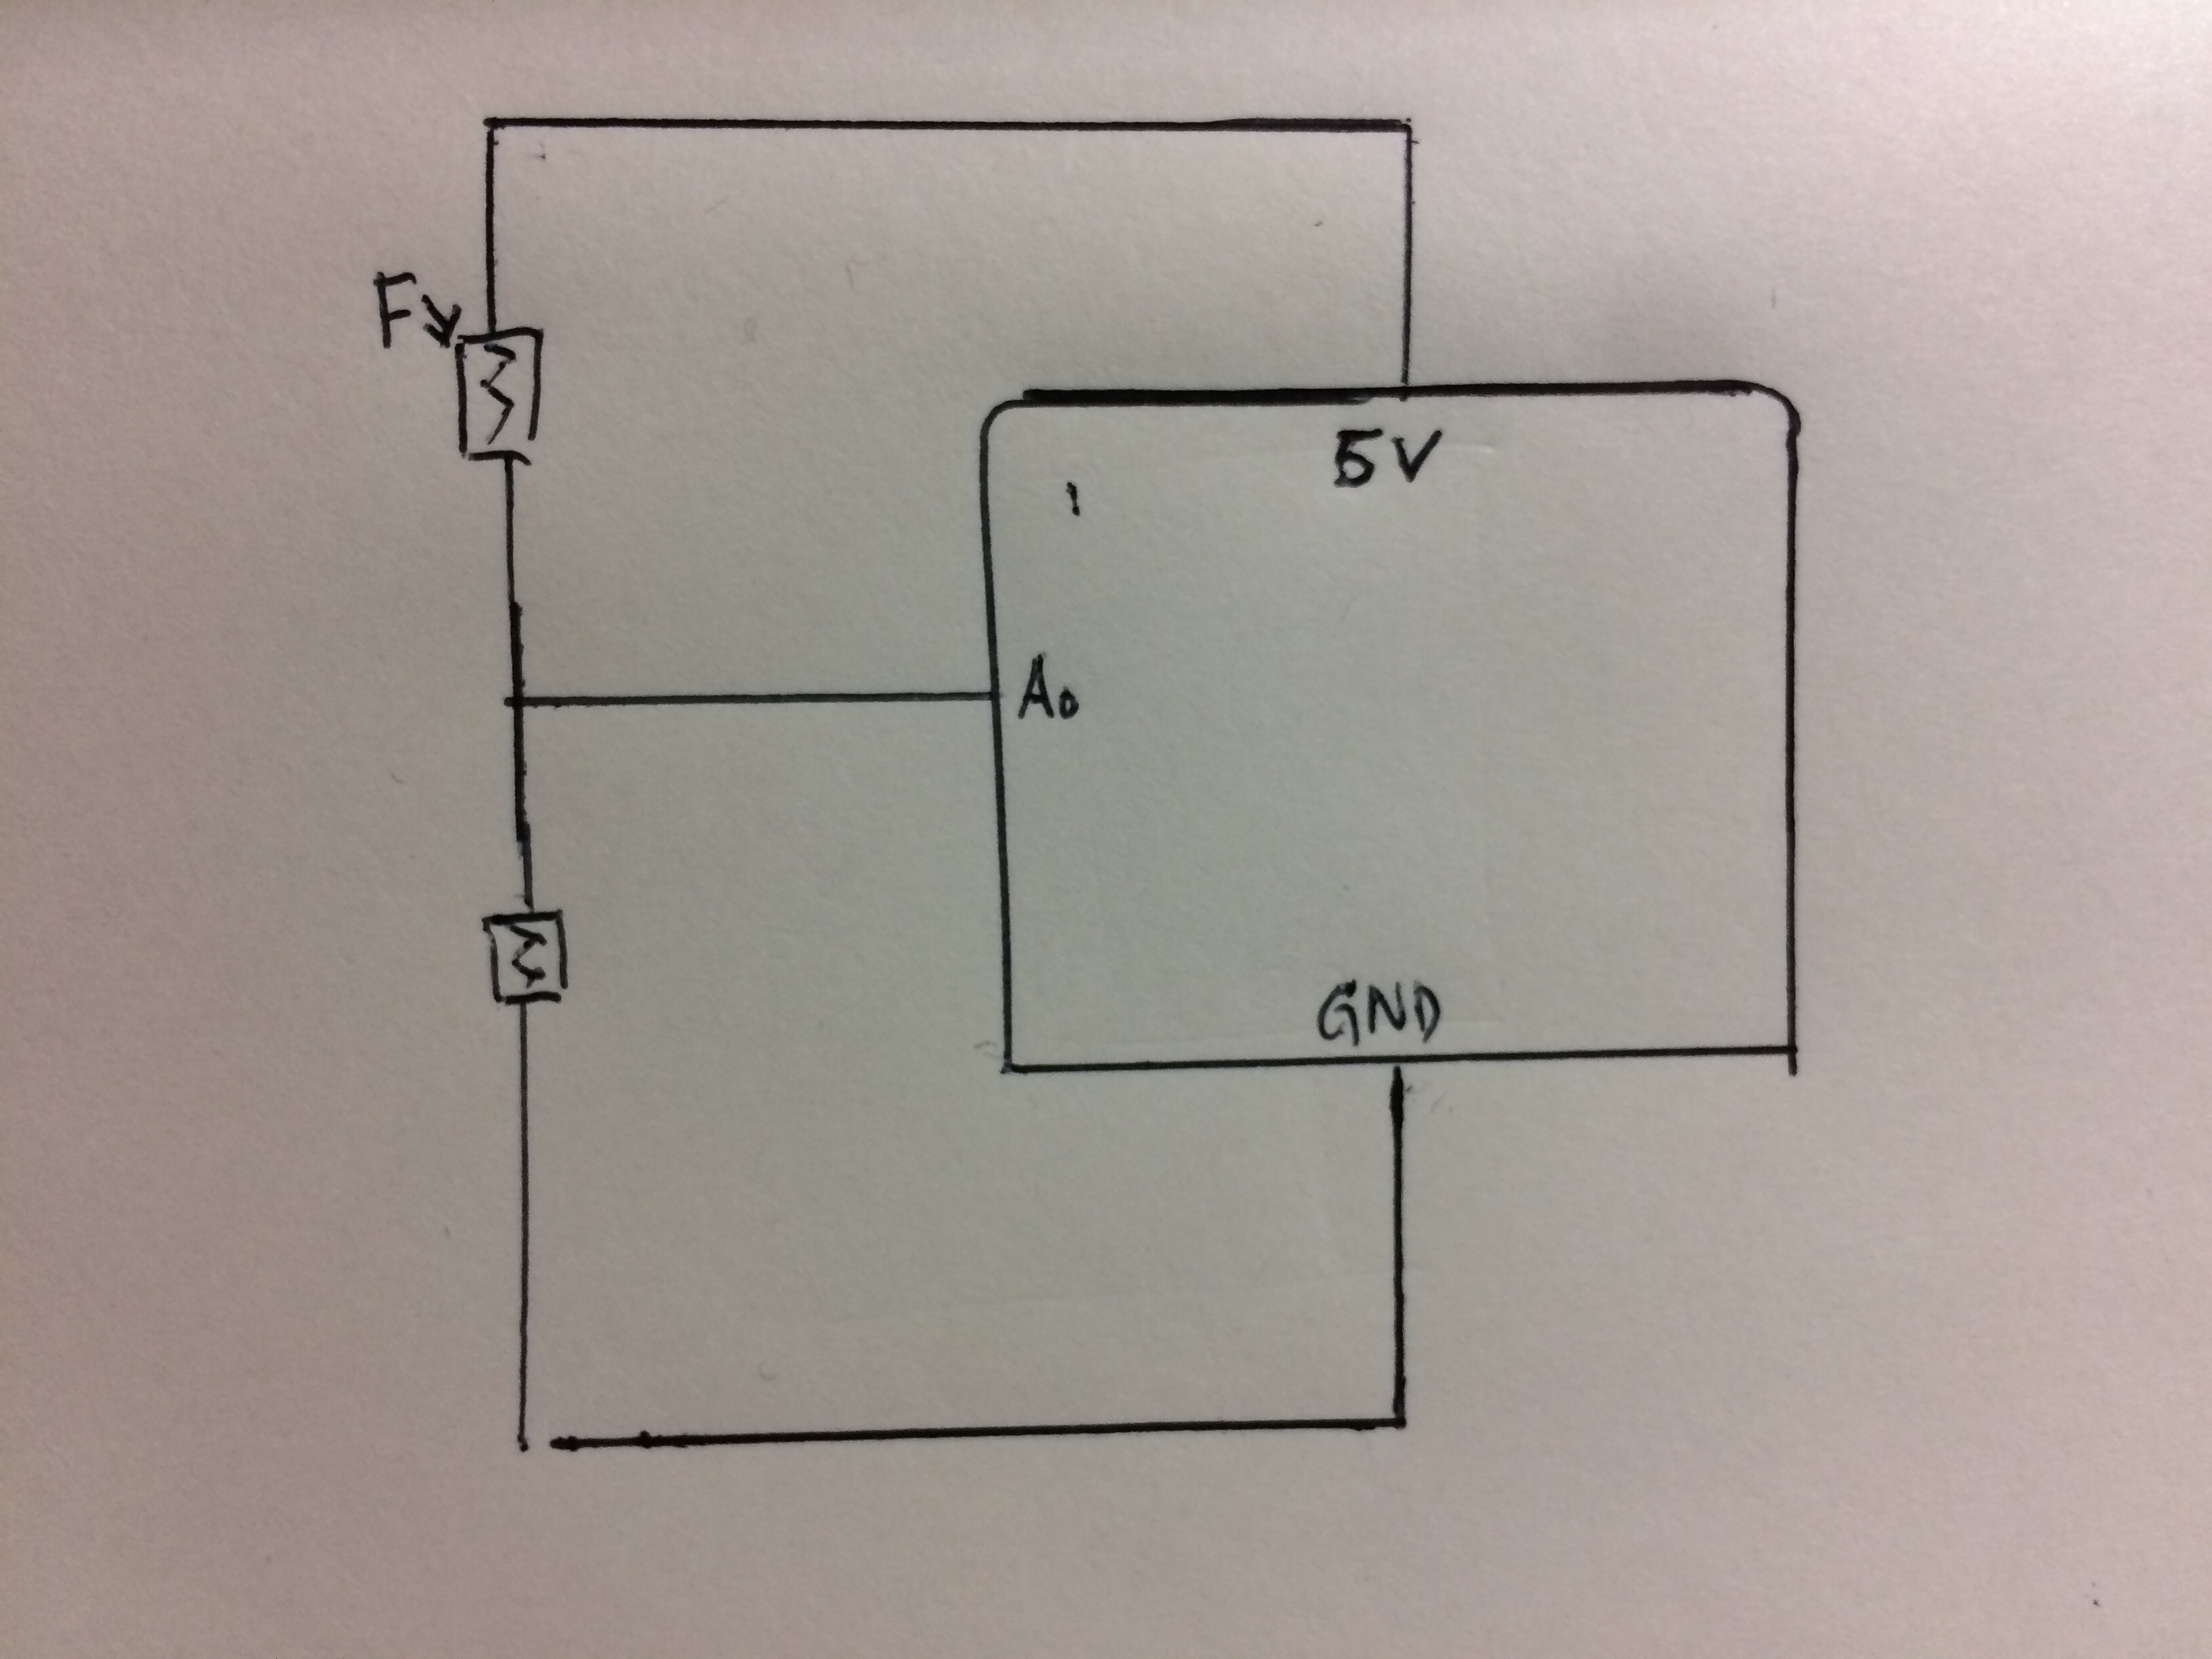 F
5V
A0
GND